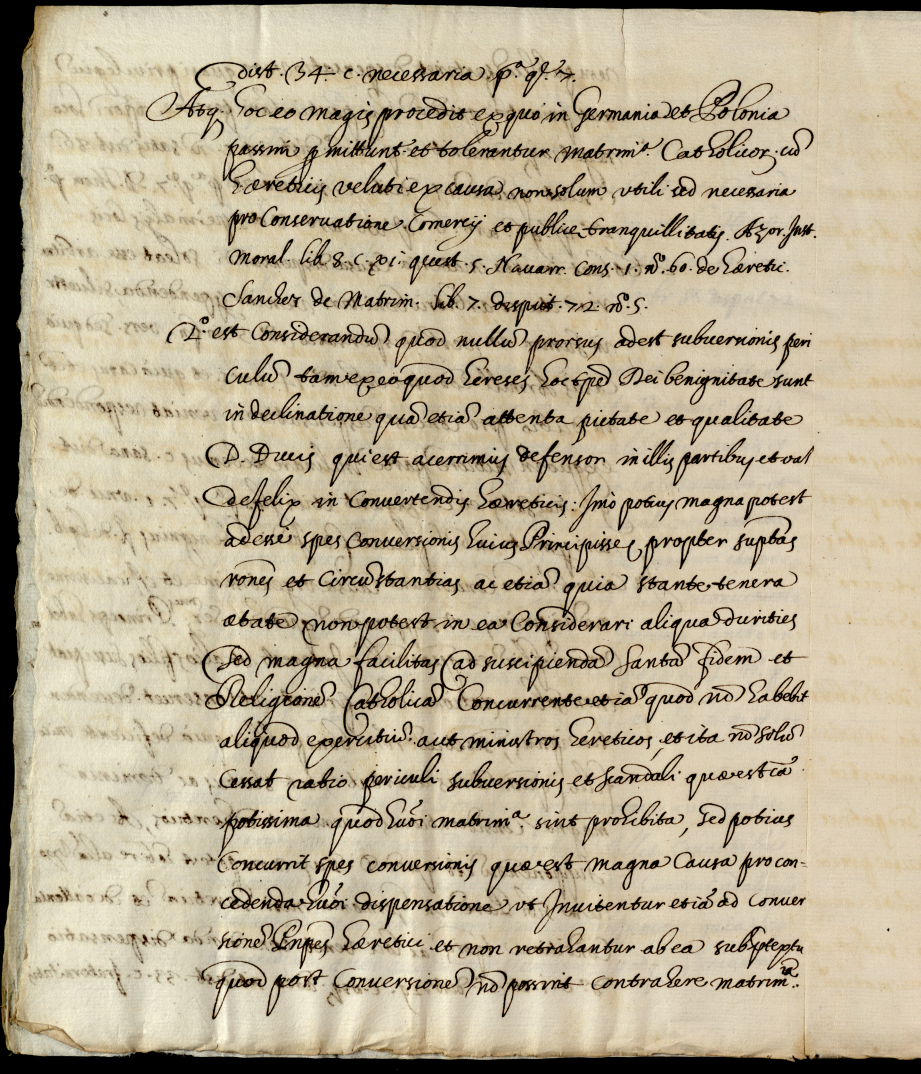 dist. 34. c. necessaria pª. qª. 7.
Atq. hoc eo magis procedit ex quo in Germania et Polonia
passim pmittunt et tolerantur matrimª. Catholicor, cũ
hæreticis veluti ex causa non solum vtili sed necessaria
pro Conseruatione Comercij et publice tranquillitatis. Azor. Inst.
moral. lib. 8. c. xi. quest. 5. Nauarr. Cons. 1. nº. 60. de hæretic.
Sanches de Matrim. lib. 7. disput. 72. nº. 5.
2º. est Considerandũ quod nullũ prorsus adest subuersionis peri
culũ tam ex eo quod hereses hoc tpẽ Dei benignitate sunt
in declinatione quã etiã attenta pietate et qualitate
D. Ducis qui est acerrimus defensor in illis partibus et val
de felix in Conuertendis hæreticis: Imò potius magna potest
adesse spes Conuersionis huius Principisse, propter suptãs
rones et Circũstantias ac etiã quia stante tenera
ætate non potest in ea Considerari aliqua durities
sed magna facilitas ad suscipiendã Santã fidem et
Religionẽ Catholicã Concurrente etiã quod nõ habebit
aliquod exercitiũ aut ministros hereticos, et ita nõ solũ
Cessat ratio periculi subuersionis et scandali quæ est cã
potissima quod huõi matrimª. sint prohibita, sed potius
Concurrit spes conuersionis quæ est magna Causa pro con-
cedenda huõi dispensatione vt Inuitentur etiã ad Conuer
sionẽ Pnpes hæretici et non retrahantur ab ea sub ptextu
quod post Conuersionẽ nõ possint contrahere matrimª.